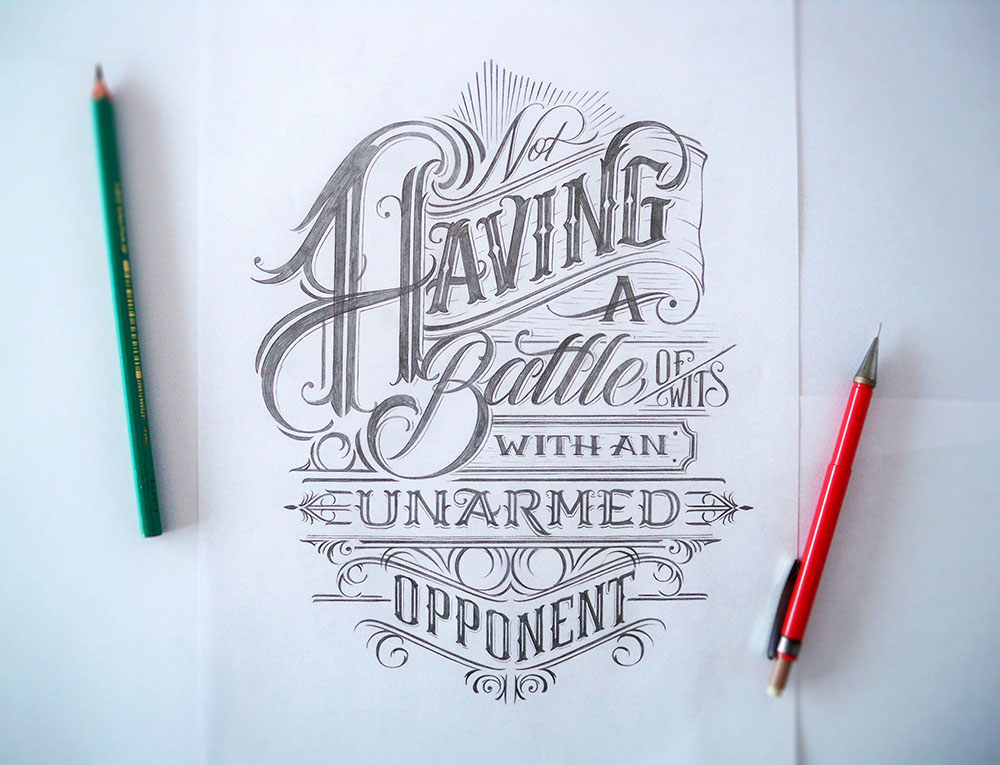 Not
HAVING
A
Battle OF WITS
WITH AN
UNARMED
OPPONENT